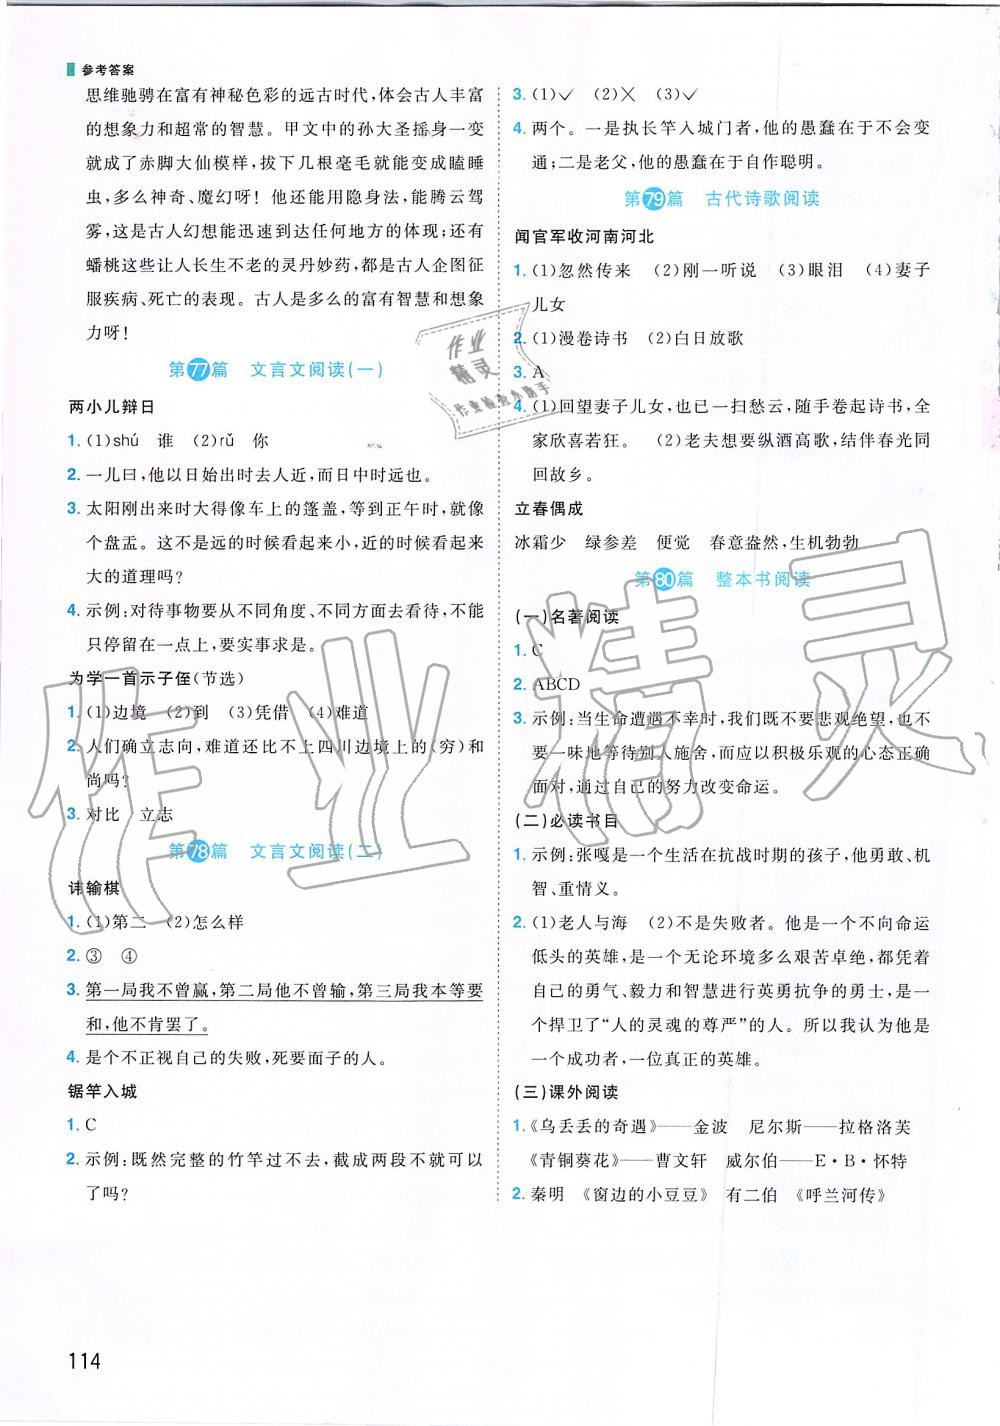 参考答案
思维驰骋在富有神秘色彩的远古时代,体会古人丰富
的想象力和超常的智慧。甲文中的孙大圣摇身一变
就成了赤脚大仙模样,拔下几根毫毛就能变成瞌睡
虫,多么神奇、魔幻呀！他还能用隐身法,能腾云驾
雾,这是古人幻想能迅速到达任何地方的体现;还有
蟠桃这些让人长生不老的灵丹妙药,都是古人企图征
服疾病、死亡的表现。古人是多么的富有智慧和想象
力呀！
第77篇 文言文阅读(一)
两小儿辩日
1. (1)shú 谁 (2)rǔ 你
2. 一儿曰,他以日始出时去人近,而日中时远也。
3. 太阳刚出来时大得像车上的篷盖,等到正午时,就像
个盘盂。这不是远的时候看起来小,近的时候看起来
大的道理吗?
4. 示例:对待事物要从不同角度、不同方面去看待,不能
只停留在一点上,要实事求是。
为学一首示子侄(节选)
1. (1)边境 (2)到 (3)凭借 (4)难道
2. 人们确立志向,难道还比不上四川边境上的(穷)和
尚吗?
3. 对比 立志
第78篇 文言文阅读(二)
讳输棋
1. (1)第二 (2)怎么样
2. ③ ④
3. 第一局我不曾赢,第二局他不曾输,第三局我本等要
和,他不肯罢了。
4. 是个不正视自己的失败,死要面子的人。
锯竿入城
1. C
2. 示例:既然完整的竹竿过不去,截成两段不就可以
了吗?
3. (1)✓ (2)✕ (3)✓
4. 两个。一是执长竿入城门者,他的愚蠢在于不会变
通;二是老父,他的愚蠢在于自作聪明。
第79篇 古代诗歌阅读
闻官军收河南河北
1. (1)忽然传来 (2)刚一听说 (3)眼泪 (4)妻子
儿女
2. (1)漫卷诗书 (2)白日放歌
3. A
4. (1)回望妻子儿女,也已一扫愁云,随手卷起诗书,全
家欣喜若狂。 (2)老夫想要纵酒高歌,结伴春光同
回故乡。
立春偶成
冰霜少 绿参差 便觉 春意盎然,生机勃勃
第80篇 整本书阅读
(一)名著阅读
1. C
2. ABCD
3. 示例:当生命遭遇不幸时,我们既不要悲观绝望,也不
要一味地等待别人施舍,而应以积极乐观的心态正确
面对,通过自己的努力改变命运。
(二)必读书目
1. 示例:张嘎是一个生活在抗战时期的孩子,他勇敢、机
智、重情义。
2. (1)老人与海 (2)不是失败者。他是一个不向命运
低头的英雄,是一个无论环境多么艰苦卓绝,都凭着
自己的勇气、毅力和智慧进行英勇抗争的勇士,是一
个捍卫了“人的灵魂的尊严”的人。所以我认为他是
一个成功者,一位真正的英雄。
(三)课外阅读
1. 《乌丢丢的奇遇》——金波 尼尔斯——拉格洛芙
《青铜葵花》——曹文轩 威尔伯——E·B·怀特
2. 秦明 《窗边的小豆豆》 有二伯 《呼兰河传》
114
作业
精灵
作业检查小助手
作业精灵